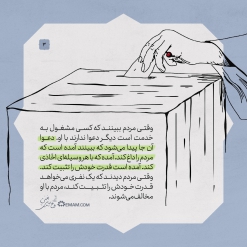 ۳
وقتی مردم ببینند که کسی مشغول به
خدمت است دیگر دعوا ندارند با او. دعوا
آن جا پیدا می‌شود که ببینند آمده است که
مردم را داغ کند، آمده که با هر وسیله‌ای اخاذی
کند، آمده است قدرت خودش را تثبیت کند.
وقتی مردم دیدند که یک نفری می‌خواهد
قدرت خودش را تثبیت کند، مردم با او
مخالف می‌شوند.
EMAM.COM